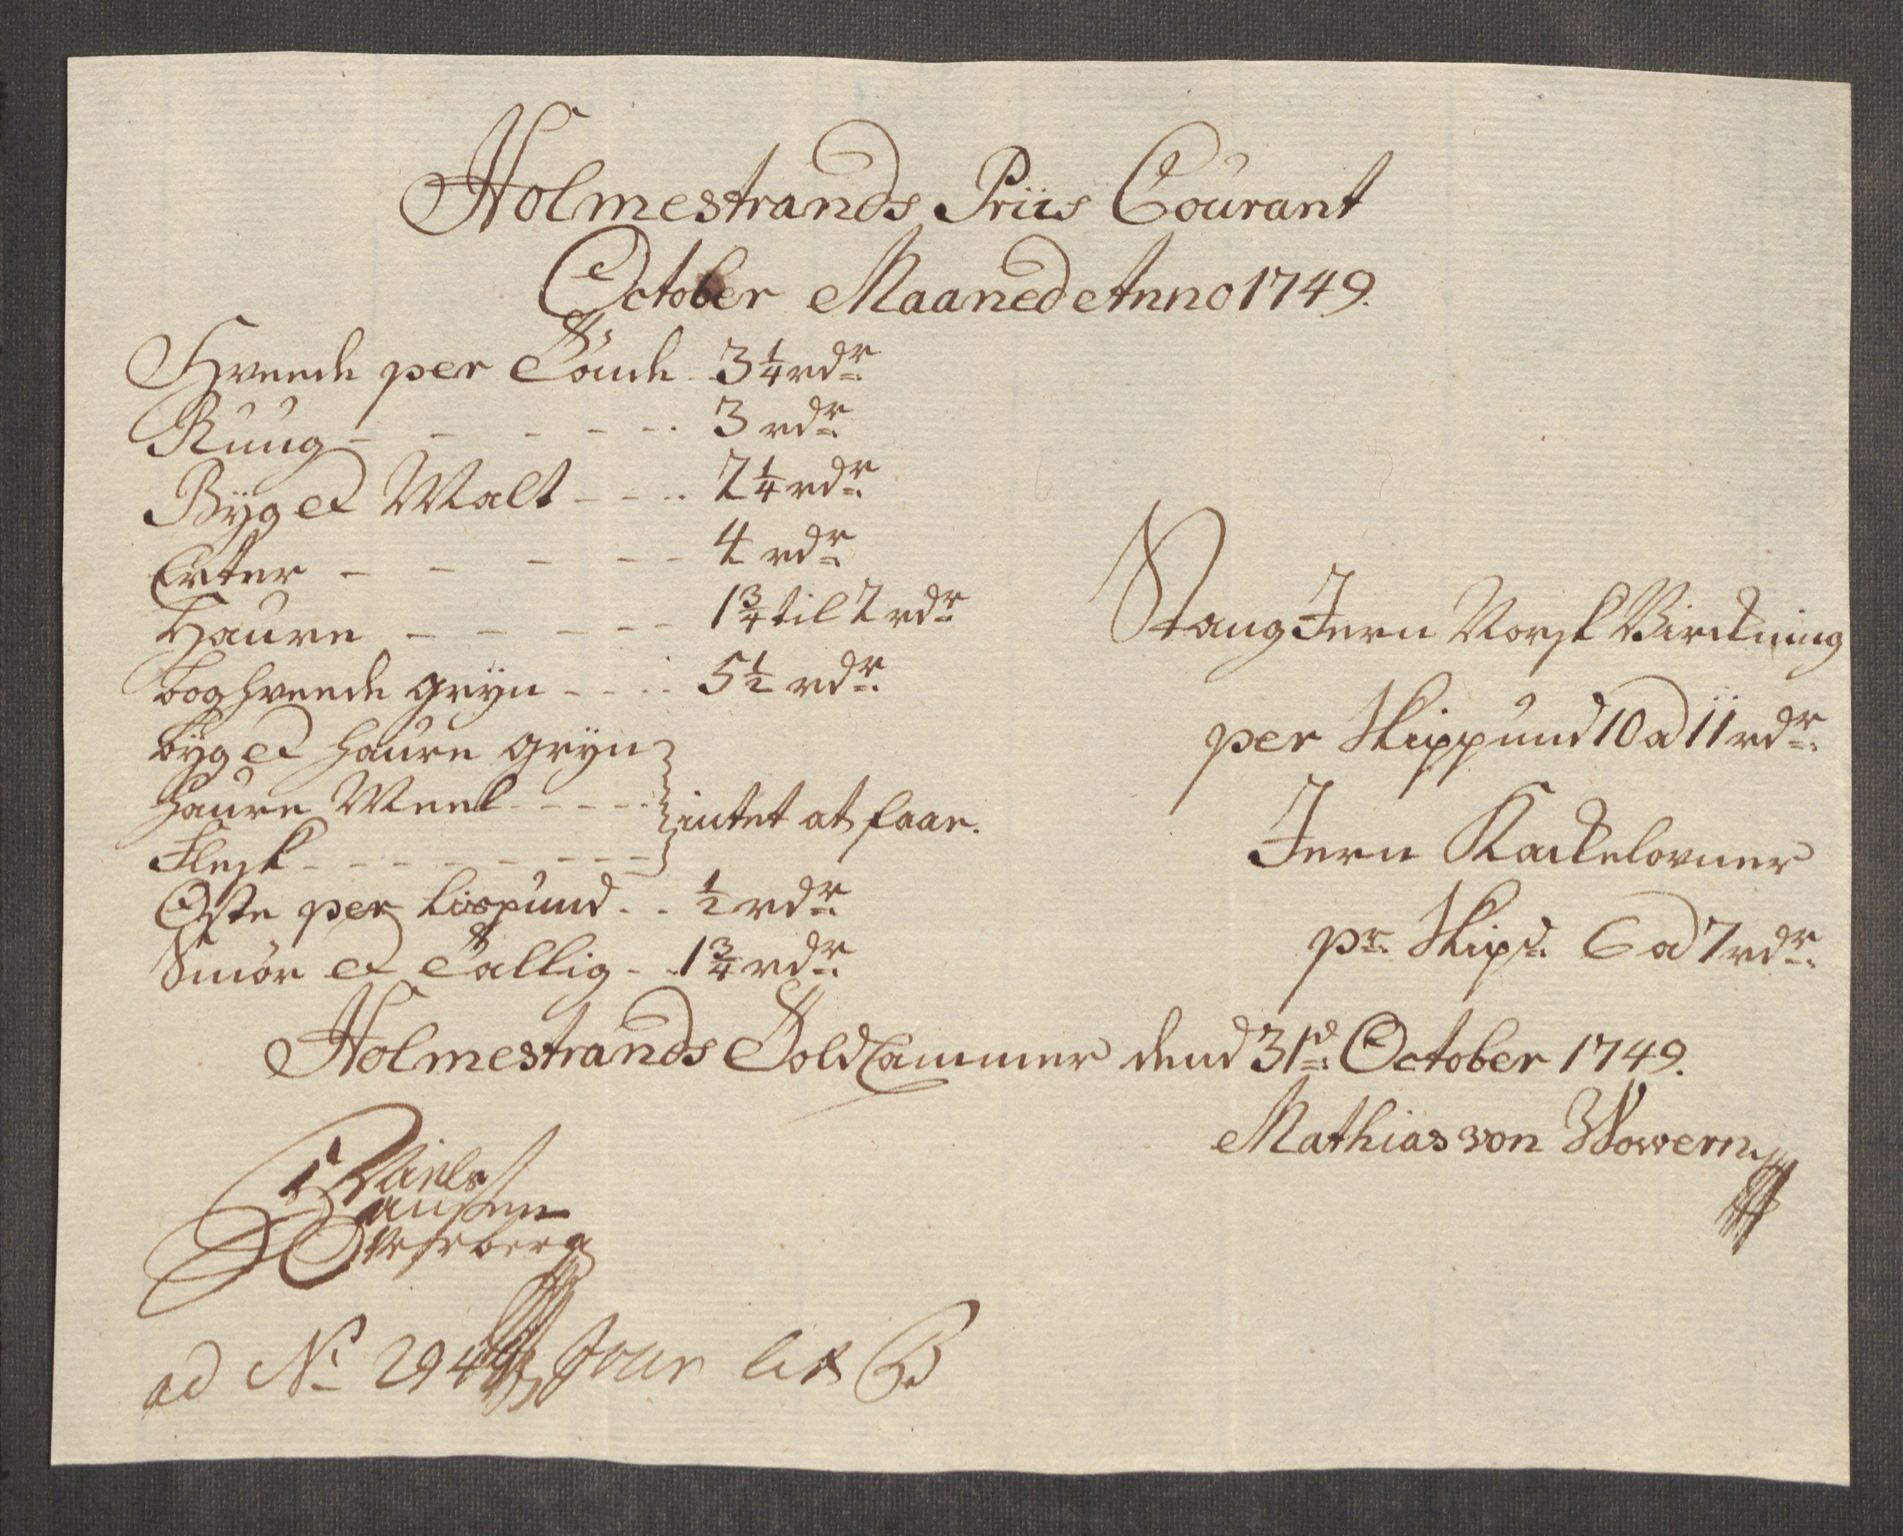 Holmestrands Priis Courant
October Maaned Anno 1749.
Hveede per Tönde . 3 1/4 rdr
Ruug - - - - - . 3 rdr
Byg et Malt - - . . 2 1/4 rdr
Erter - - - - - - 4 rdr
Haure - - - - - - 1 3/4 til 2 rdr
boghveede gryn - . . . 5 1/2 rdr
byg et haure gryn
haure Meel - - - - -
intet at faae.
Flesk - - - - - - - - -
Oste per Lispund . . 1/2 rdr
Smör et Tallig - . 1 3/4 rdr
Stang Jern Norsk Virckning
per Skippund 10 a 11 rdr
Jern Kackelovner
pr Skipd 6 a 7 rdr
Holmestrands Told Cammer dend 31d October 1749.
Mathias von Wowern
Niels
Hansen
ad No 294 Jour Lit B